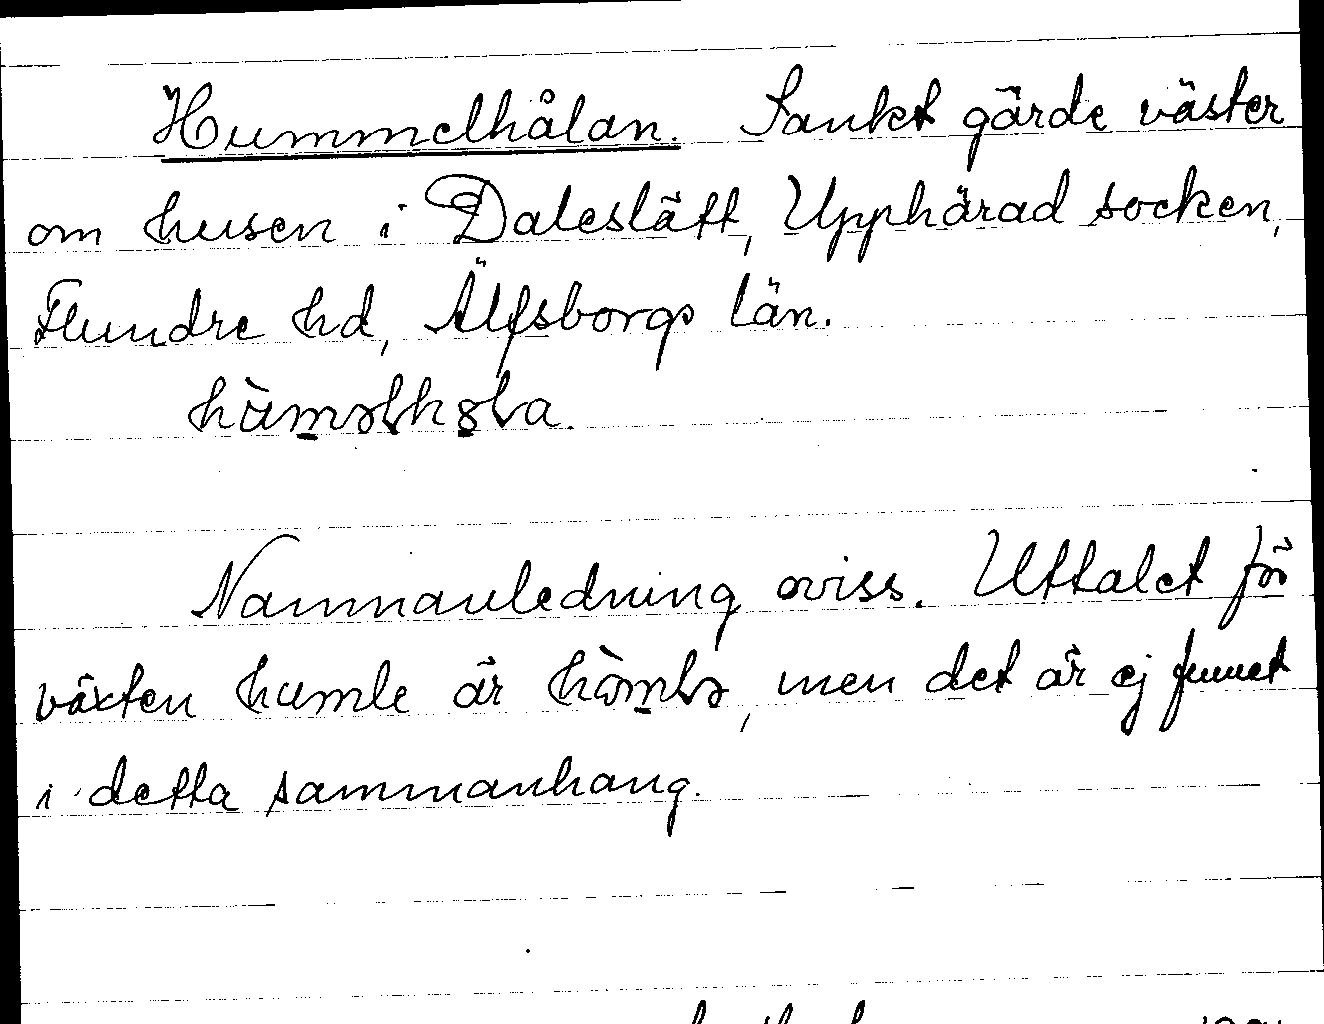 Hummelhålan. Sankt gärde väster
om husen i Daleslätt, Upphärad socken,
Flundre hd, Älfsborgs län.
Namnanledning oviss. Uttalet för
växten humle är men det är ej funnet
i detta sammanhang.